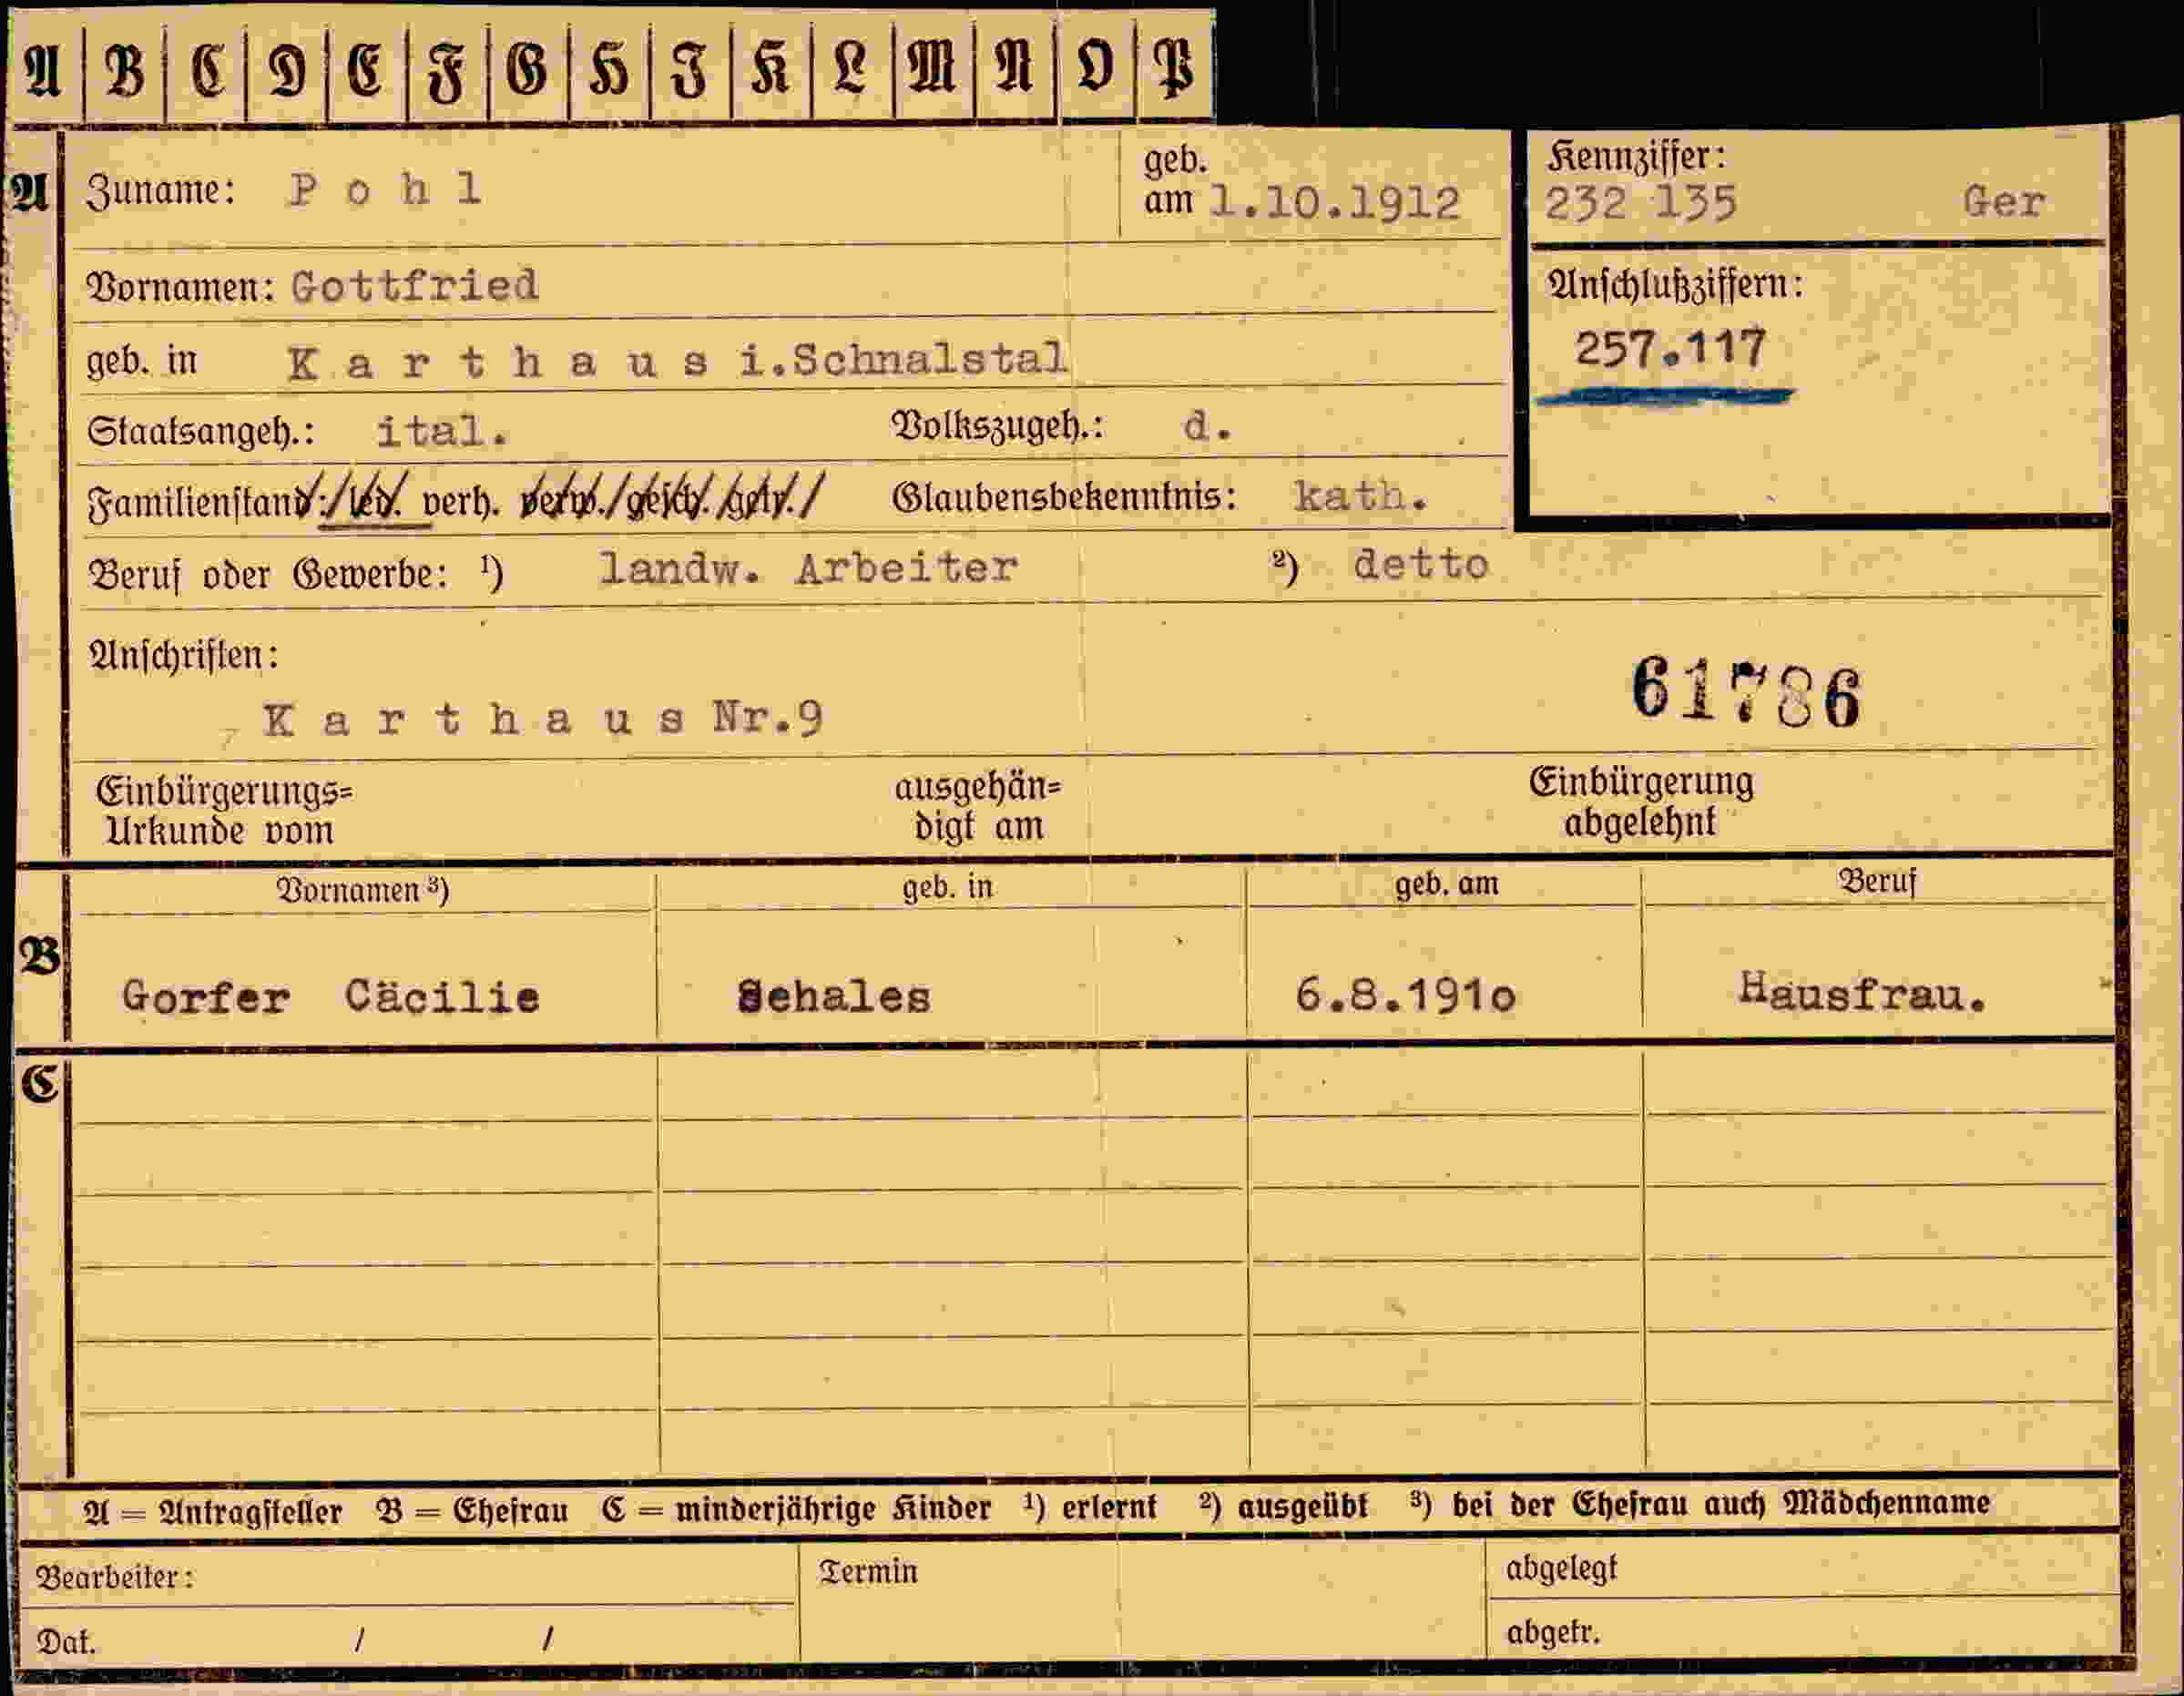 A B C D E F G H I K L M N O P
A Zuname: Pohl geb. am 1.10.1912
Kennziffer:
232 135 Ger
Vornamen: Gottfried
Anschlußziffern:
257.117
geb. in Karthaus i.Schnalstal
Staatsangeh.: ital. Volkszugeh.: d.
Familienstand: led. verh. verw./gesch./getr./ Glaubensbekenntnis: kath.
Beruf oder Gewerbe: ¹) landw. Arbeiter ²) detto
Anschriften:
61786
Karthaus Nr.9
Einbürgerungs=
Urkunde vom
ausgehän=
digt am
Einbürgerung
abgelehnt
B Vornamen ³) geb. in geb. am Beruf
Gorfer Cäcilie Sehales 6.8.191o Hausfrau.
C
A = Antragsteller B = Ehefrau C = minderjährige Kinder ¹) erlernt ²) ausgeübt ³) bei der Ehefrau auch Mädchenname
Bearbeiter: Termin abgelegt
Dat. / / abgetr.